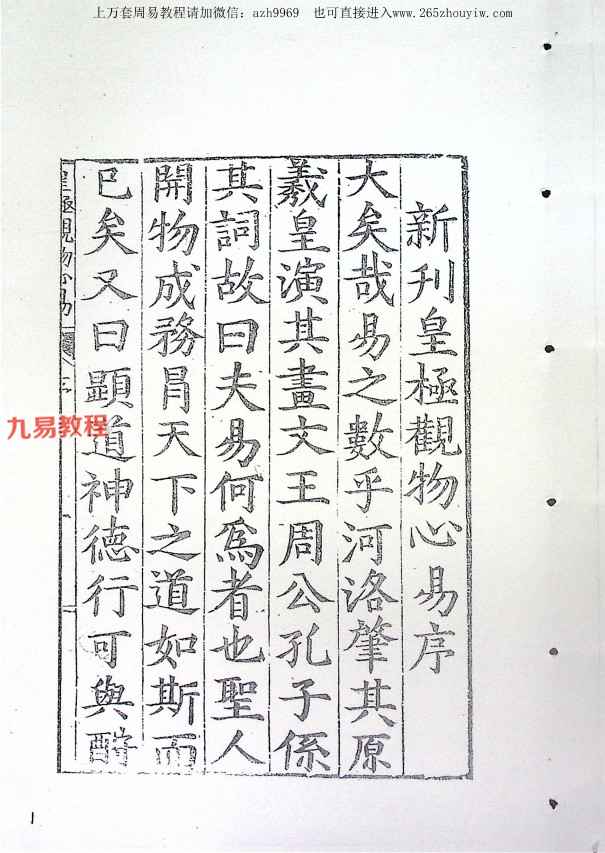 上万套周易教程请加微信：azh9969 也可直接进入www.265zhouyiw.com
新刊皇極觀物心易序
大矣哉易之數乎河洛肇其原
羲皇演其畫文王周公孔子係
其詞故曰夫易何爲者也聖人
開物成務冐天下之道如斯而
已矣又曰顕道神德行可與酬
皇極觀物心易
序
九易教程
1